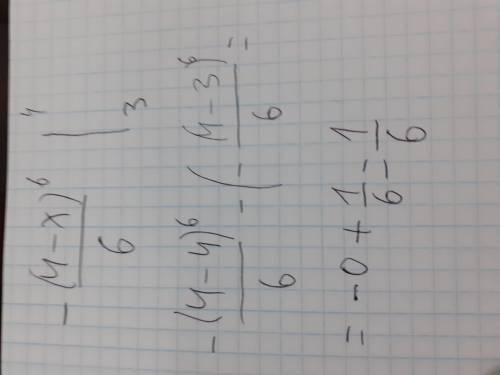 -(4-x)⁶/6 |₃⁴
-(4-4)⁶/6 - (-(4-3)⁶/6 =
= -0 + 1/6 = 1/6